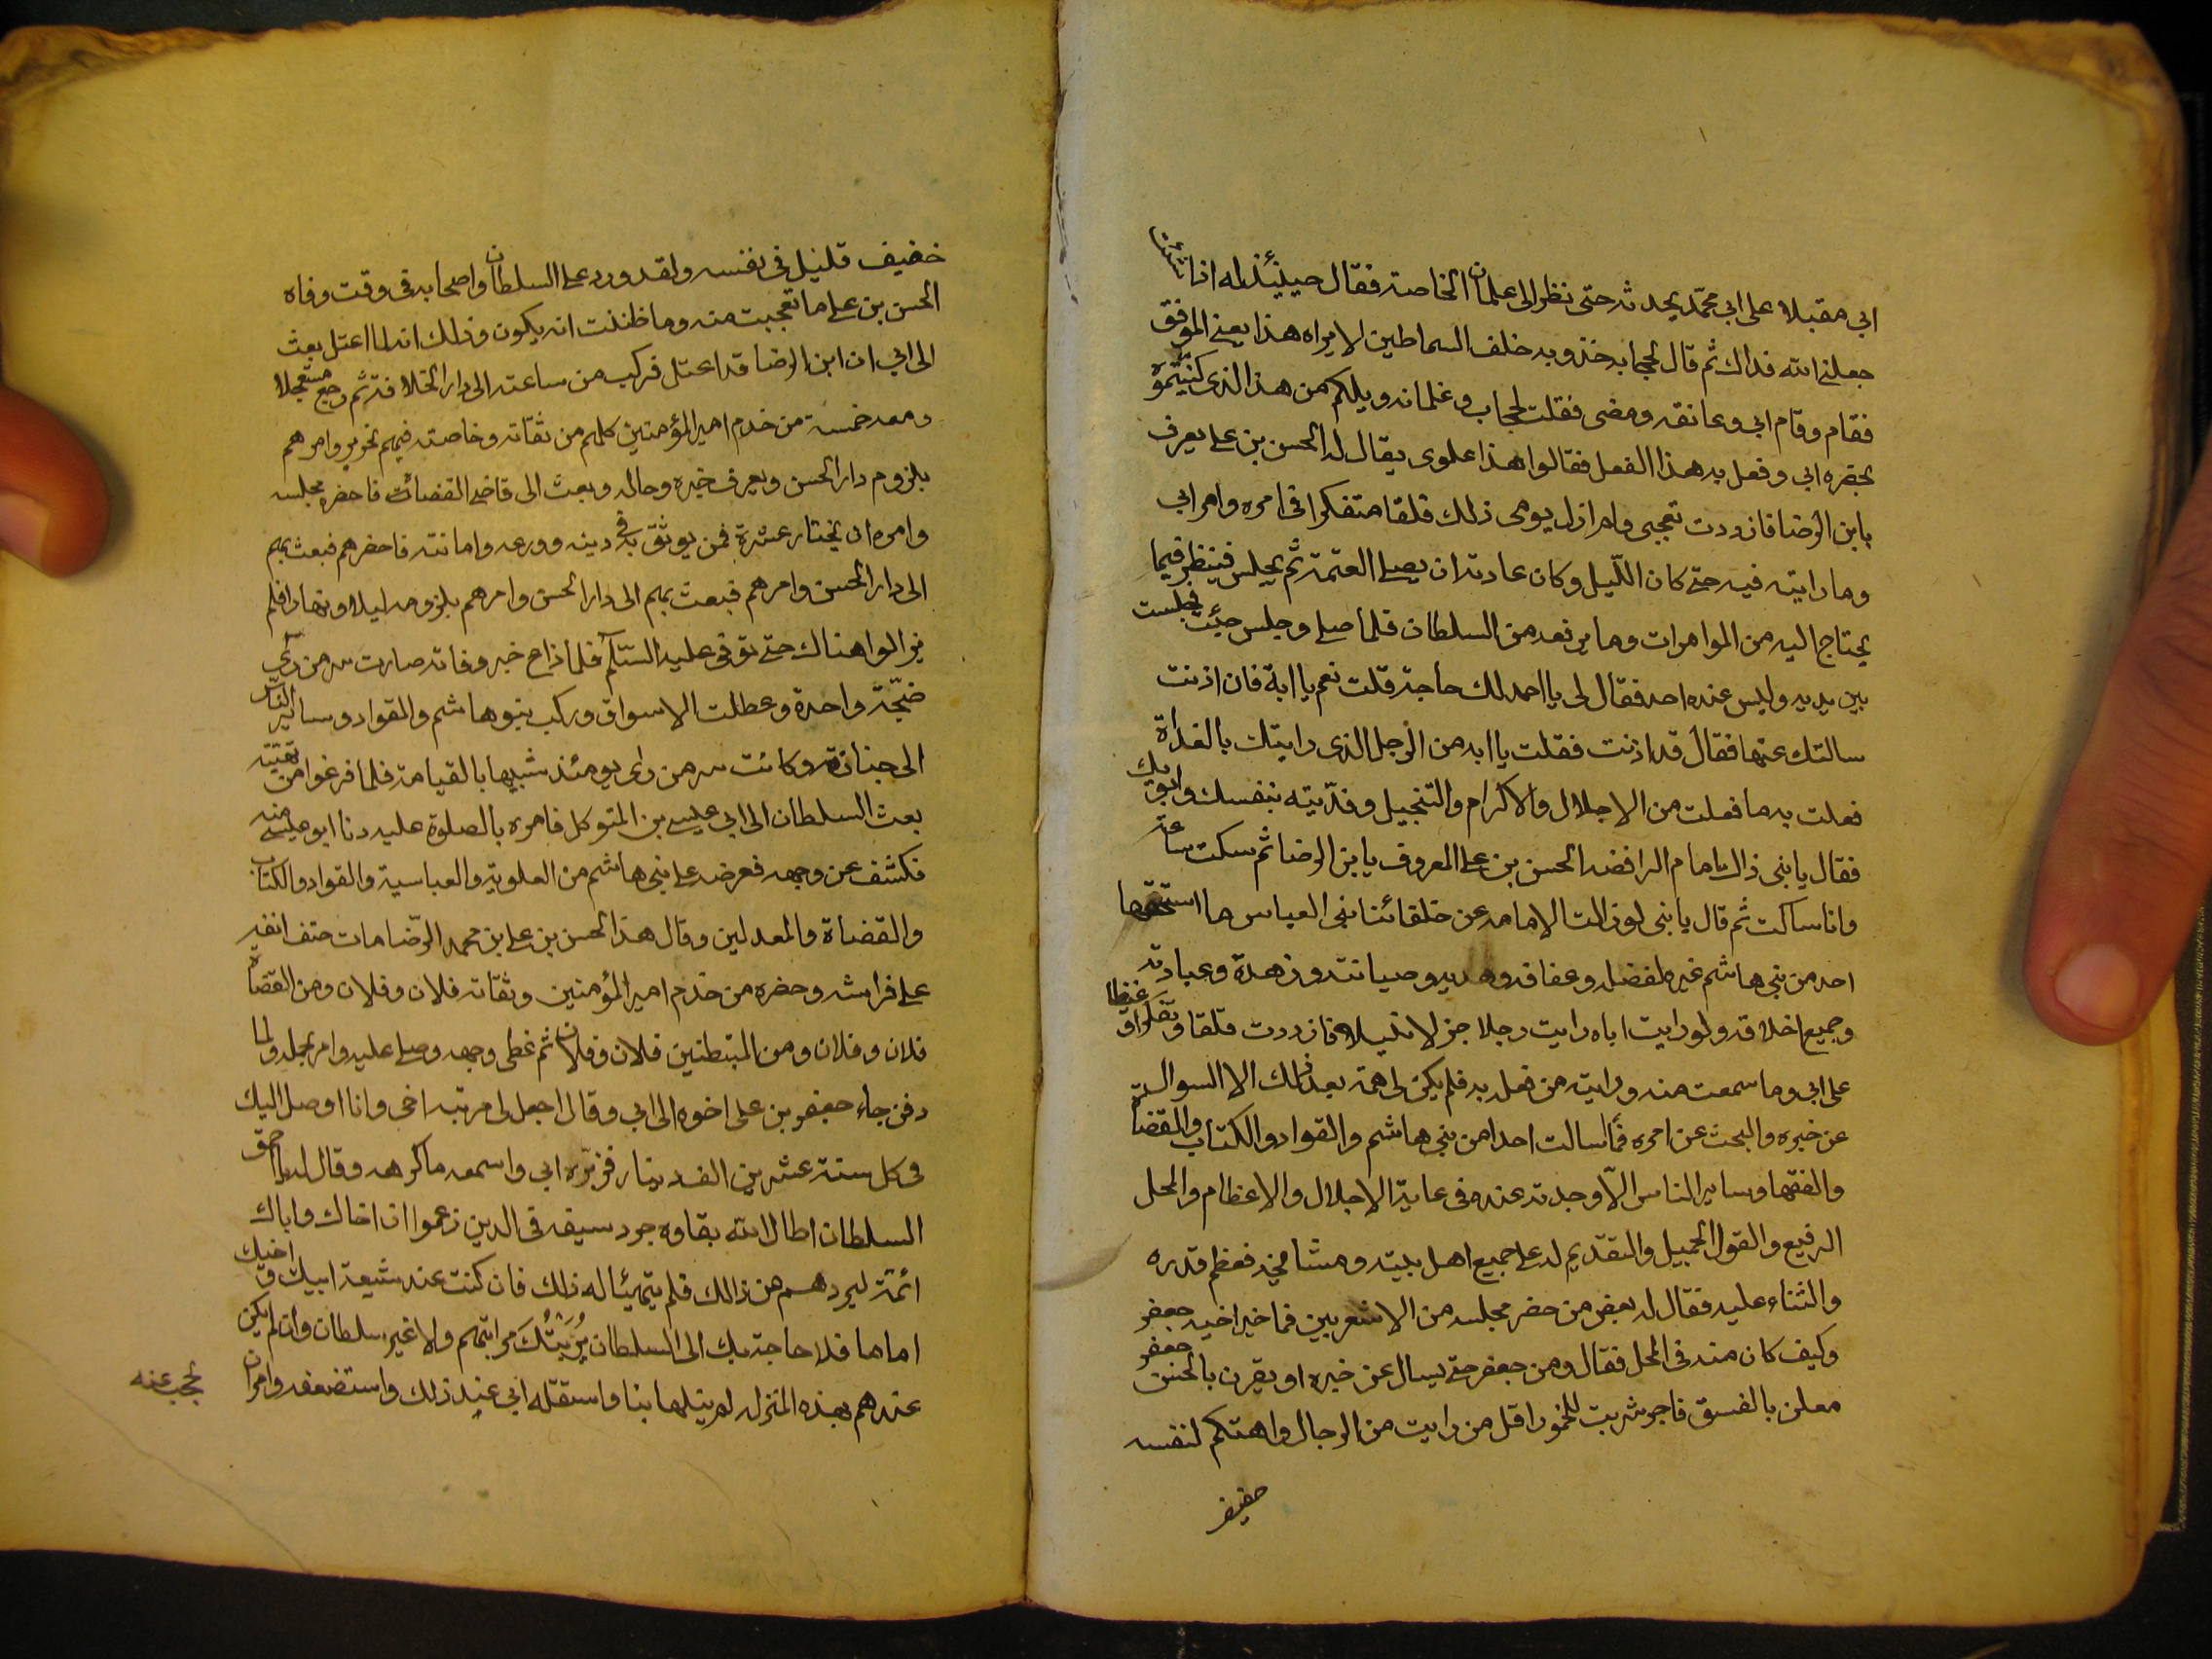 ابي مقبلا على ابي محمّد يحدثه حتى نظر الى غلمان الخاصة فقال حينئذ له اذا شئت
جعلني الله فداك ثم قال لحجابه خذو به خلف السماطين لا يراه هذا يعني الموفق
فقام وقام ابي وعانقه ومضى فقلت لحجاب وغلمانه ويلكم من هذا الذي كنيتموه
بحضره ابي وفعل به هذا الفعل فقالوا هذا علوى يقال له الحسن بن علي يعرف
بابن الرضا فازددت تعجبي ولم ازل يومى ذلك قلقا متفكرا في امره وامر ابي
وما رايته فيه حتى كان اللّيل وكان عادته ان يصلي العتمة ثم يجلس فينظر فيما
يحتاج اليه من الموامرات وما يرفعه من السلطان فلما صلي وجلس جئت فجلست
بين يديه وليس عنده احد فقال لى يا احمد لك حاجة قلت نعم يا ابة فان اذنت
سالتك عنها فقال قد اذنت فقلت يا ابه من الرجل الذى رايتك بالغداة
فعلت به ما فعلت من الاجلال والاكرام والتبجيل وفدّيته بنفسك وابويك
فقال يا بنى ذاك امام الرافضه الحسن بن على المعروف بابن الرضا ثم سكت ساعة
وانا ساكت ثم قال يا بنى لو زالت الامامه عن خلفائنا بنى العباس ما استحقها
احد من بني هاشم غيره لفضله وعفافه وهديه وصيانته وزهده وعبادته
وجميع اخلاقه ولو رايت اباه رايت رجلا جزلا نبيلا فازددت قلقا وتفكرا وغيظا
على ابى وما سمعت منه ورايته من فعله به فلم يكن لى همة بعد ذلك الا السوال
عن خبره والبحث عن امره فما سالت احدا من بني هاشم والقواد والكتاب والقضاة
والفقها وساير الناس الّا وجدته عنده فى غاية الاجلال والاعظام والمحل
الرفيع والقول الجميل والتقديم له على جميع اهل بيته ومشايخه فعظم قدره
والثناء عليه فقال له بعض من حضر مجلسه من الاشعريين فما خبر اخيه جعفر
وكيف كان منه فى المحل فقال ومن جعفر حتى يسال عن خبره او يقرن بالحسن جعفر
معلن بالفسق فاجر شريب للخمور اقل من رايت من الرجال واهتكم لنفسه
خفيف
خفيف قليل فى نفسه ولقد ورد على السلطان واصحابه فى وقت وفاه
الحسن بن على ما تعجبت منه وما ظننت انه يكون وذلك انه لما اعتل بعث
الى ابي ان ابن الرضا قد اعتل فركب من ساعته الى دار الخلافة ثم رجع مستعجلا
ومعه خمسة من خدم امير المؤمنين كلهم من ثقاته وخاصته فيهم نحرير وامرهم
بلزوم دار الحسن وتعرف خبره وحاله وبعث الى قاضي القضات فاحضره مجلسه
وامره ان يختار عشرة فمن يوثق به فى دينه وورعه وامانته فاحضرهم فبعث بهم
الى دار الحسن وامرهم فبعث بهم الى دار الحسن وامرهم بلزومه ليلا ونهارا فلم
يزالوا هناك حتى توفى عليه السّلم فلما ذاع خبر وفاته صارت سر من رأى
ضجّة واحدة وعطلت الاسواق وركب بنوهاشم والقواد وساير الناس
الى جنازته وكانت سر من راى يومئذ شبيها بالقيامة فلما فرغوا من تهيئته
بعث السلطان الى ابي عيسى بن المتوكل فامره بالصلوة عليه دنا ابو عيسى منه
فكشف عن وجهه فعرضه على بني هاشم من العلوية والعباسية والقواد والكتاب
والقضاة والمعدلين وقال هذا الحسن بن على بن محمد الرضا مات حتف انفه
على فراشه وحضره من خدم امير المؤمنين وثقاته فلان وفلان ومن القضاة
فلان وفلان ومن المتبطنين فلان وفلان ثم غطى وجهه وصلى عليه وامر بحمله ولما
دفن جاء جعفر بن على اخوه الى ابي وقال اجعل لى مرتبه اخى وانا اوصل اليك
فى كل سنة عشرين الف دينار فزبره ابي واسمعه ما كرهه وقال له يا احمق
السلطان اطال الله بقاوه جرد سيفه في الذين زعموا ان اخاك واباك
ائمّة ليردهم من ذالك فلم يتهيئا له ذلك فان كنت عند شيعة ابيك واخيك
اماما فلا حاجة بك الى السلطان يُرَتبُكَ مراتبهم ولا غير سلطان وان لم يكن
عندهم بهذه المنزله لم ينلها بنا واستقله ابى عند ذلك واستضعفه وامر ان
يحجب عنه